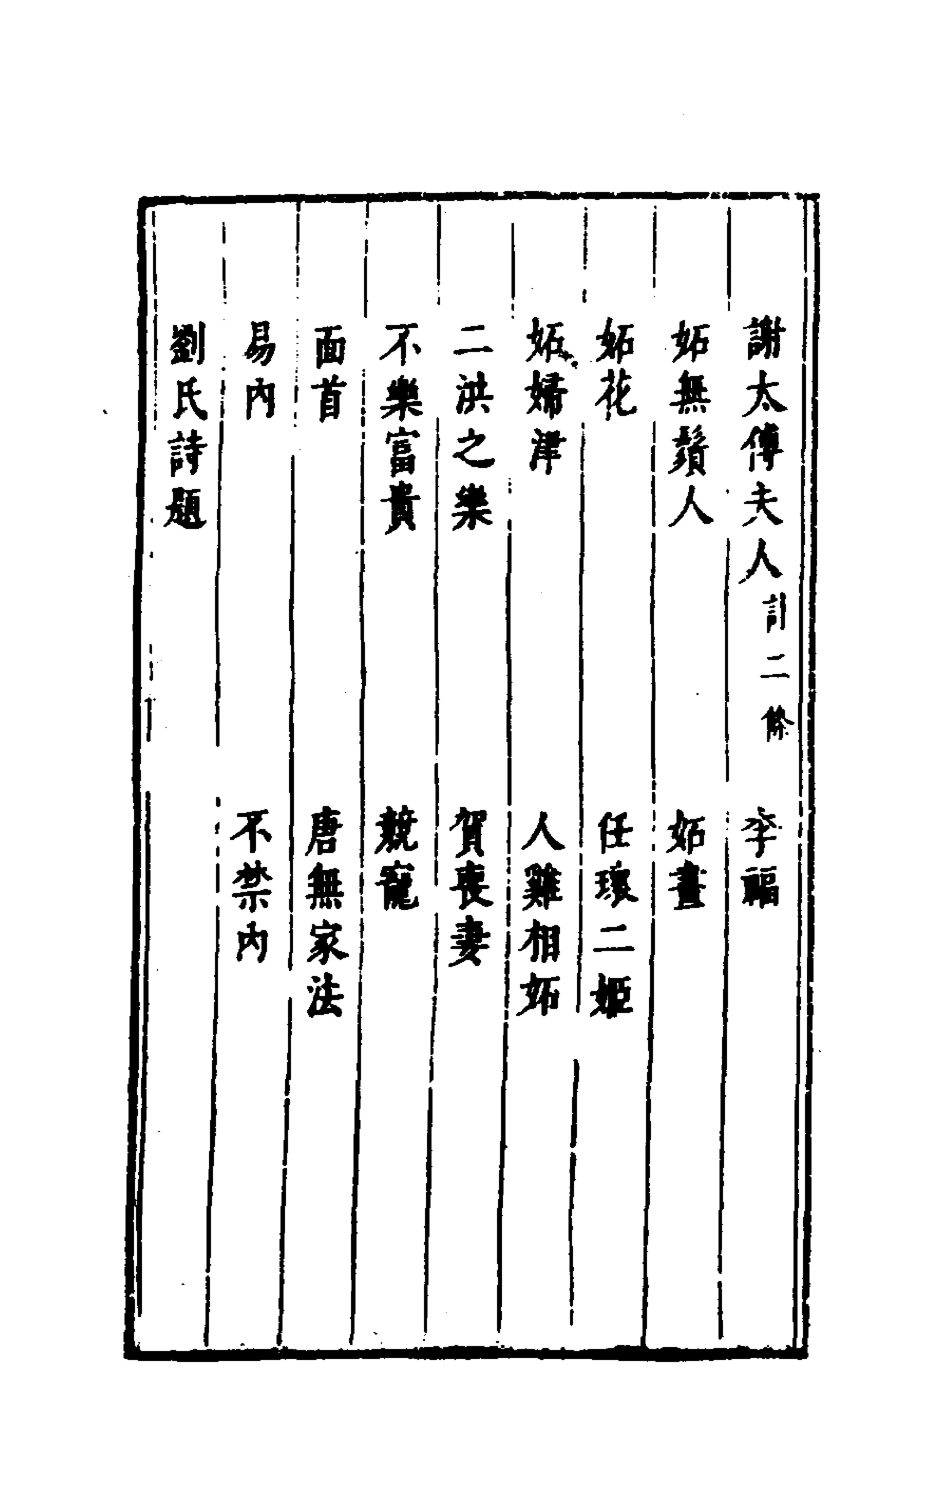 謝太傅夫人計二條　李福
妬無鬚人　妬畫
妬花　任瓌二姬
妬婦津　人雞相妬
二洪之樂　賀喪妻
不樂富貴　競寵
面首　唐無家法
易內　不禁內
劉氏詩題